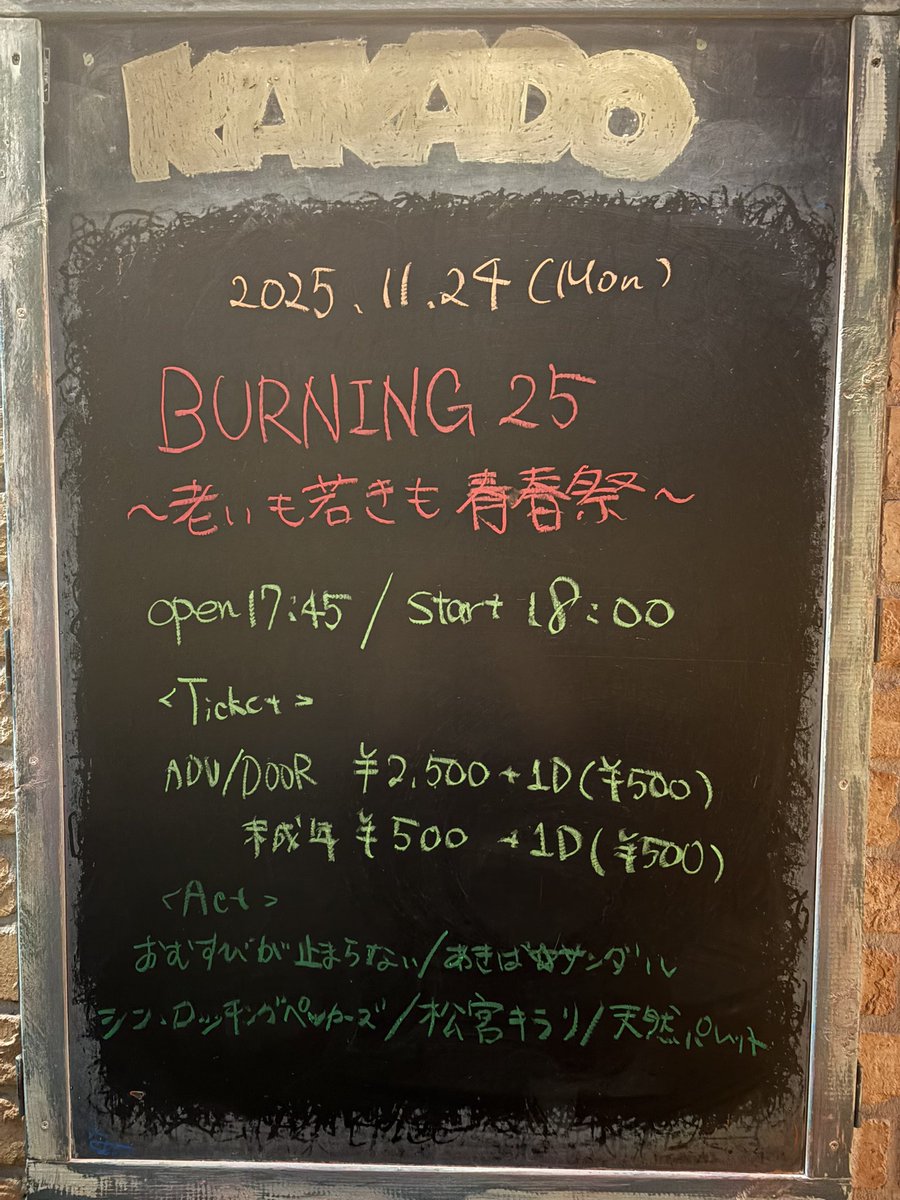 KAKADO
2025.11.24(Mon)
BURNING 25
〜老いも若きも青春祭〜
open17:45/Start 18:00
<Ticket>
ADV/DOOR ¥2,500+1D(¥500)
未成年 ¥500 +1D(¥500)
<Act>
おむすびが止まらない/あきば☆サンダル
シン・ロッキングペッカーズ/松宮キラリ/天然パレット